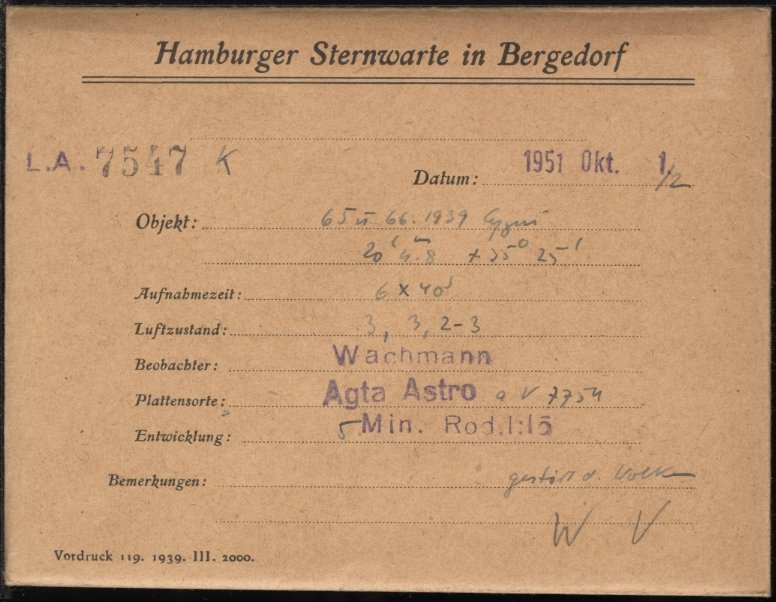 Hamburger Sternwarte in Bergedorf
L.A. 7547 K
Datum: 1951 Okt. 1/2
Objekt: 65 u 66.1939 Cygni
20ʰ 4ᵐ.8 +35° 25'
Aufnahmezeit: 6 x 40ˢ
Luftzustand: 3, 3, 2-3
Beobachter: Wachmann
Plattensorte: Agfa Astro V 7754
Entwicklung: 5 Min. Rod.1:15
Bemerkungen: gestört d. Wolken
W V
Vordruck 119. 1939. III. 2000.